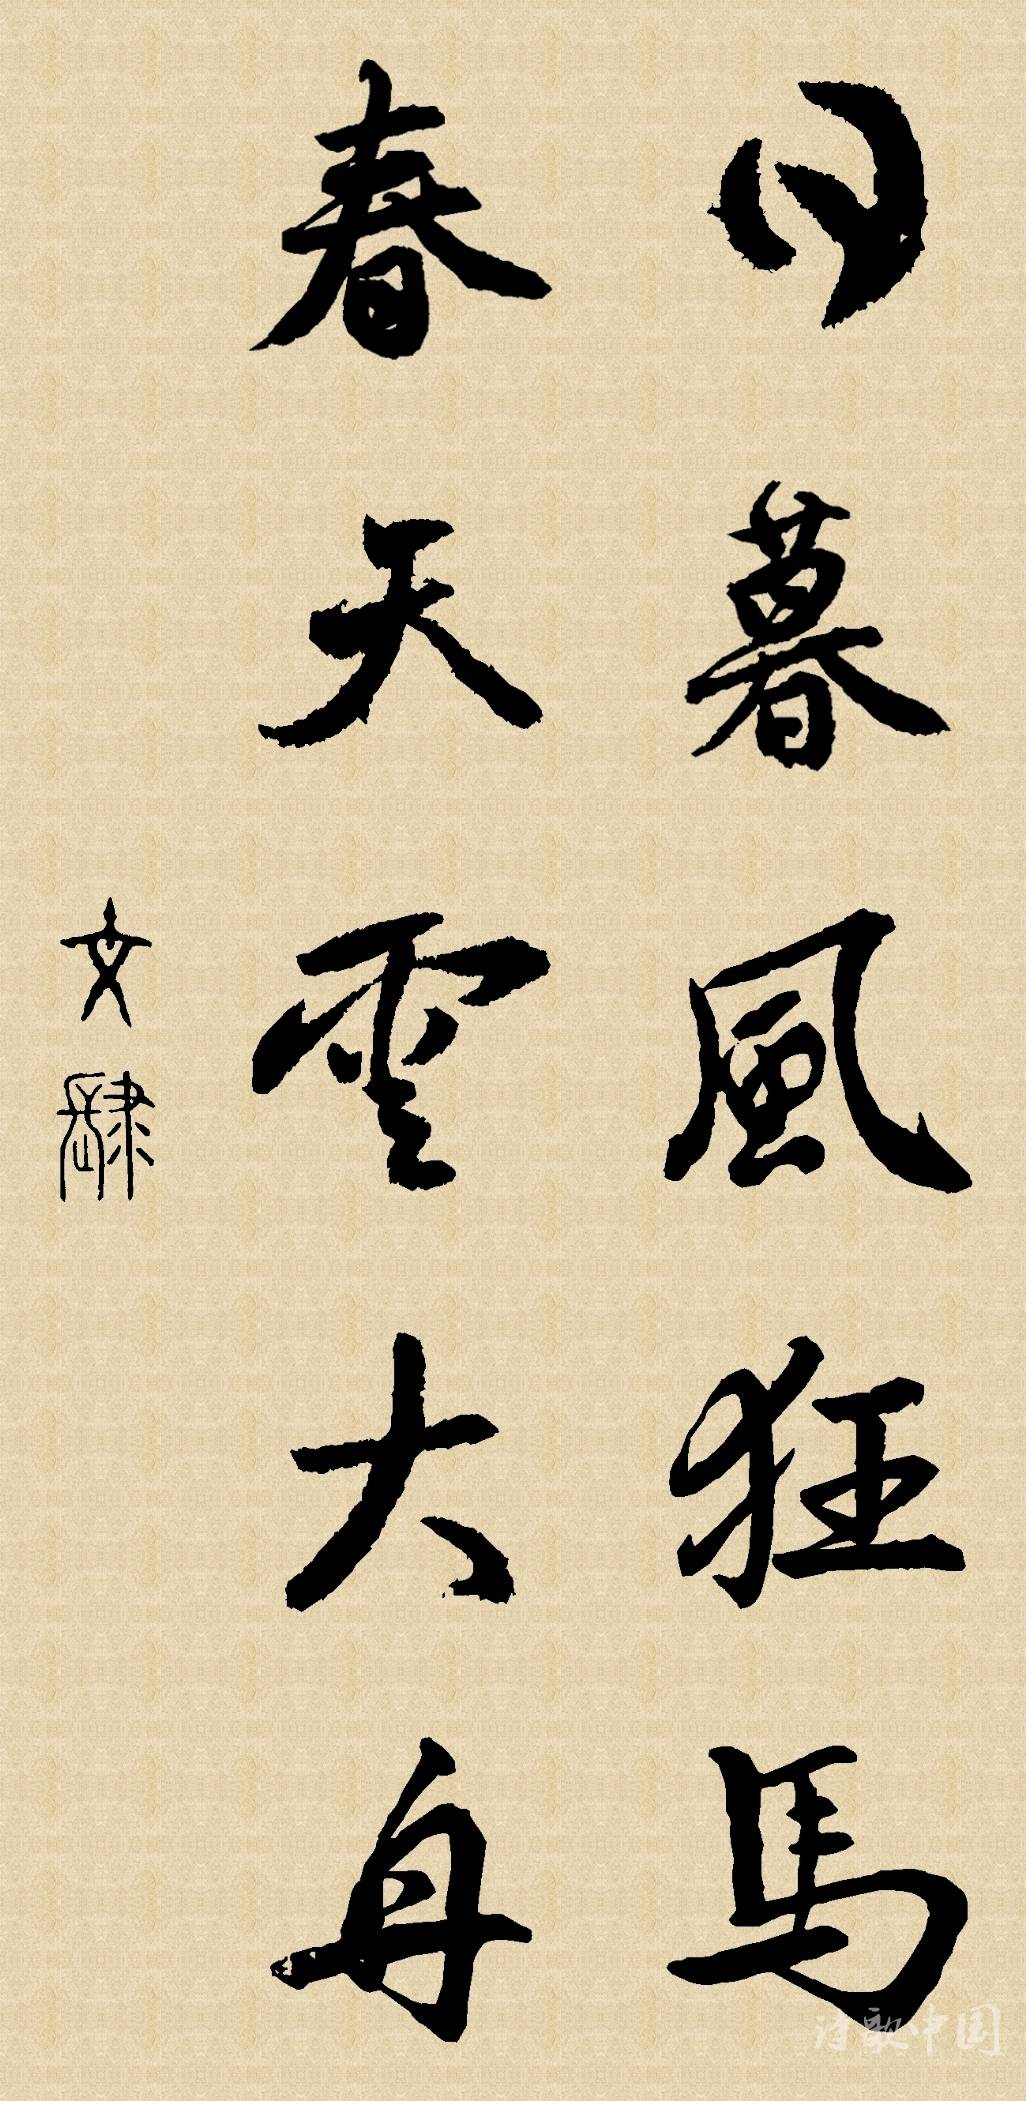 日暮風狂馬
春天雲大舟
文肆
诗歌中国